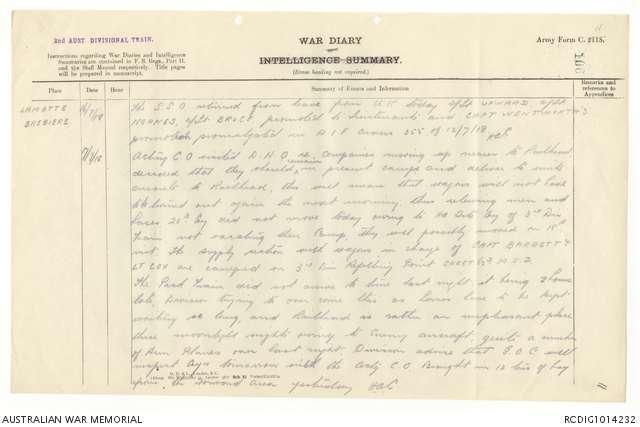 2nd AUST DIVISIONAL TRAIN.
WAR DIARY
or
INTELLIGENCE SUMMARY.
(Erase heading not required.)
Army Form C. 2118.
Instructions regarding War Diaries and Intelligence
Summaries are contained in F. S. Regs., Part II.
and the Staff Manual respectively. Title pages
will be prepared in manuscript.
Place Date Hour Summary of Events and Information Remarks and references to Appendices
LAMOTTE BREBIERE 16/7/18 The S.S.O returned from leave from U.K today 2/Lt UPWARD 2/Lt
2/Lt BRUCE promoted to Lieutenants and CAPT WENTWORTH'S
promotion promulgated in A I F Orders 355 of 12/7/18
17/7/18 Acting C.O visited D.H.Q re companies moving up nearer to Railhead
decided that they should remain in present camps and deliver to units
direct to Railhead, this will mean that wagons will not have
to be turned out again the next morning, thus relieving men and
horses 20th Coy did not move today owing to No Coy of 3rd Div
Train not vacating their Camp. They will possibly moved on 18th
inst. The supply section with wagons in charge of CAPT BARRETT &
LT COX are camped on 3rd Div Refilling Point
The Pack Train did not arrive to time last night it being 2 hours
late, Division trying to over come this as horses have to be kept
waiting so long, and Railhead is rather an unpleasant place
these moonlight nights owing to Enemy aircraft, quite a number
of Planes over last night. Division advise that G.O.C will
inspect Coys tomorrow with the Actg C.O Brought in 12 tons of hay
from the forward area yesterday
AUSTRALIAN WAR MEMORIAL
RCDIG1014232